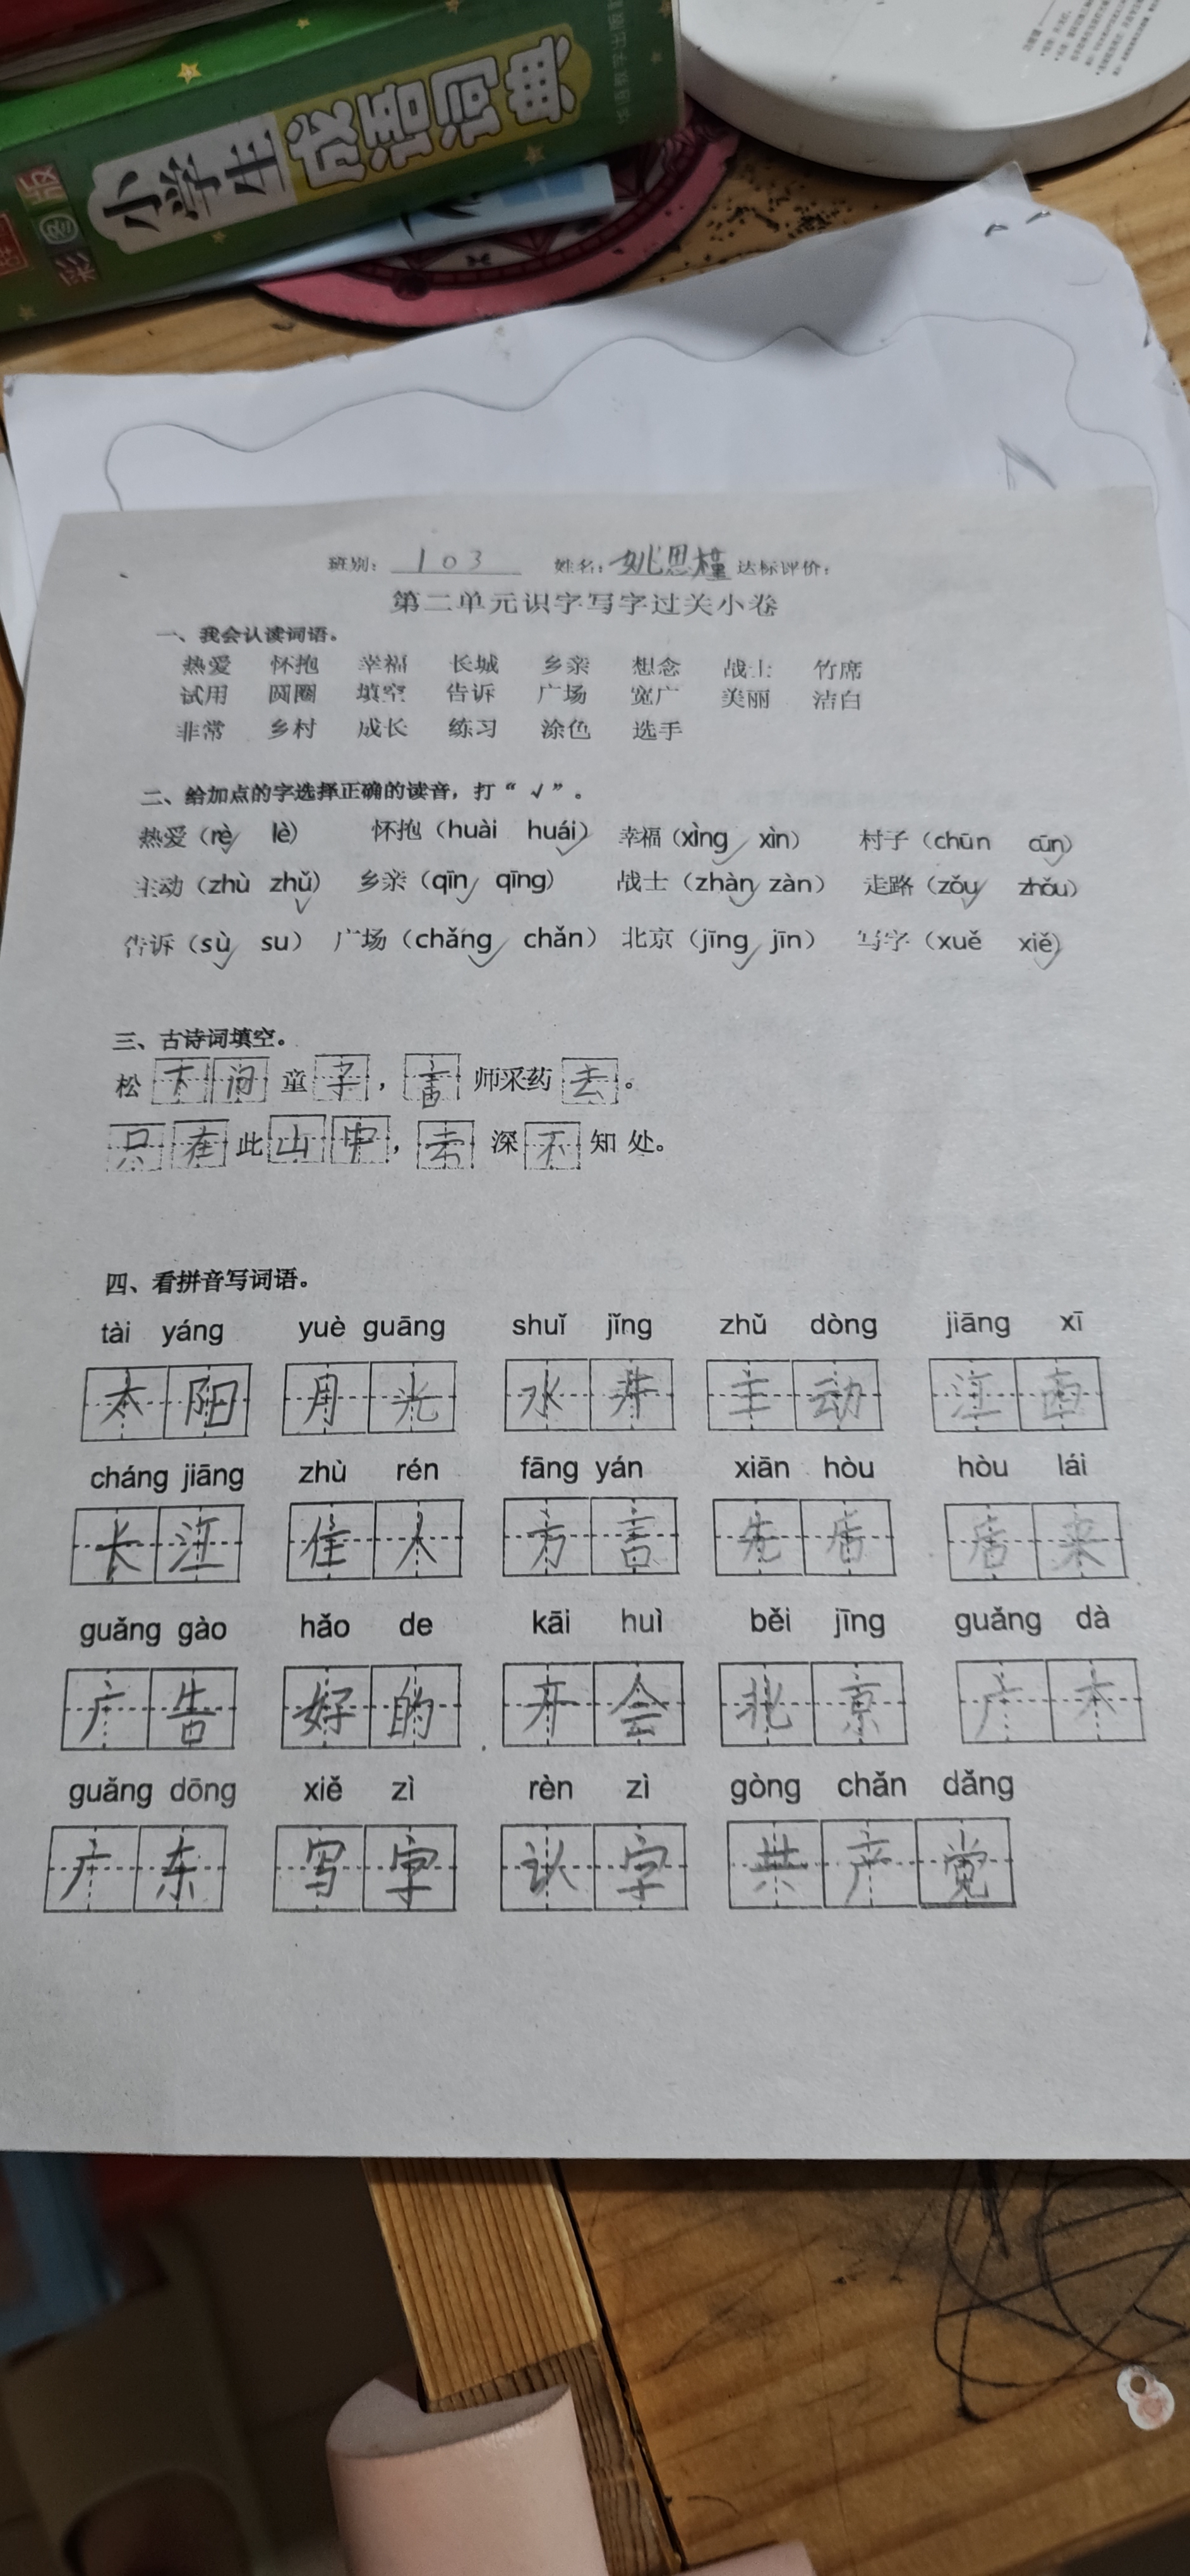 小学生成语词典
彩图版
华语教学出版社
班别：103 姓名：姚思槿 达标评价：
第二单元识字写字过关小卷
一、我会认读词语。
热爱 怀抱 幸福 长城 乡亲 想念 战士 竹席
试用 圆圈 填空 告诉 广场 宽广 美丽 洁白
非常 乡村 成长 练习 涂色 选手
二、给加点的字选择正确的读音，打“√”。
热爱（rè✓ lè） 怀抱（huài huái✓） 幸福（xìng✓ xìn） 村子（chūn cūn✓）
主动（zhù zhǔ✓） 乡亲（qīn✓ qīng） 战士（zhàn✓ zàn） 走路（zǒu✓ zhǒu）
告诉（sù✓ su） 广场（chǎng✓ chǎn） 北京（jīng✓ jīn） 写字（xuě xiě✓）
三、古诗词填空。
松下问童子，言师采药去。
只在此山中，云深不知处。
四、看拼音写词语。
tài yáng yuè guāng shuǐ jǐng zhǔ dòng jiāng xī
太阳 月光 水井 主动 江西
cháng jiāng zhù rén fāng yán xiān hòu hòu lái
长江 住人 方言 先后 后来
guǎng gào hǎo de kāi huì běi jīng guǎng dà
广告 好的 开会 北京 广大
guǎng dōng xiě zì rèn zì gòng chǎn dǎng
广东 写字 认字 共产党